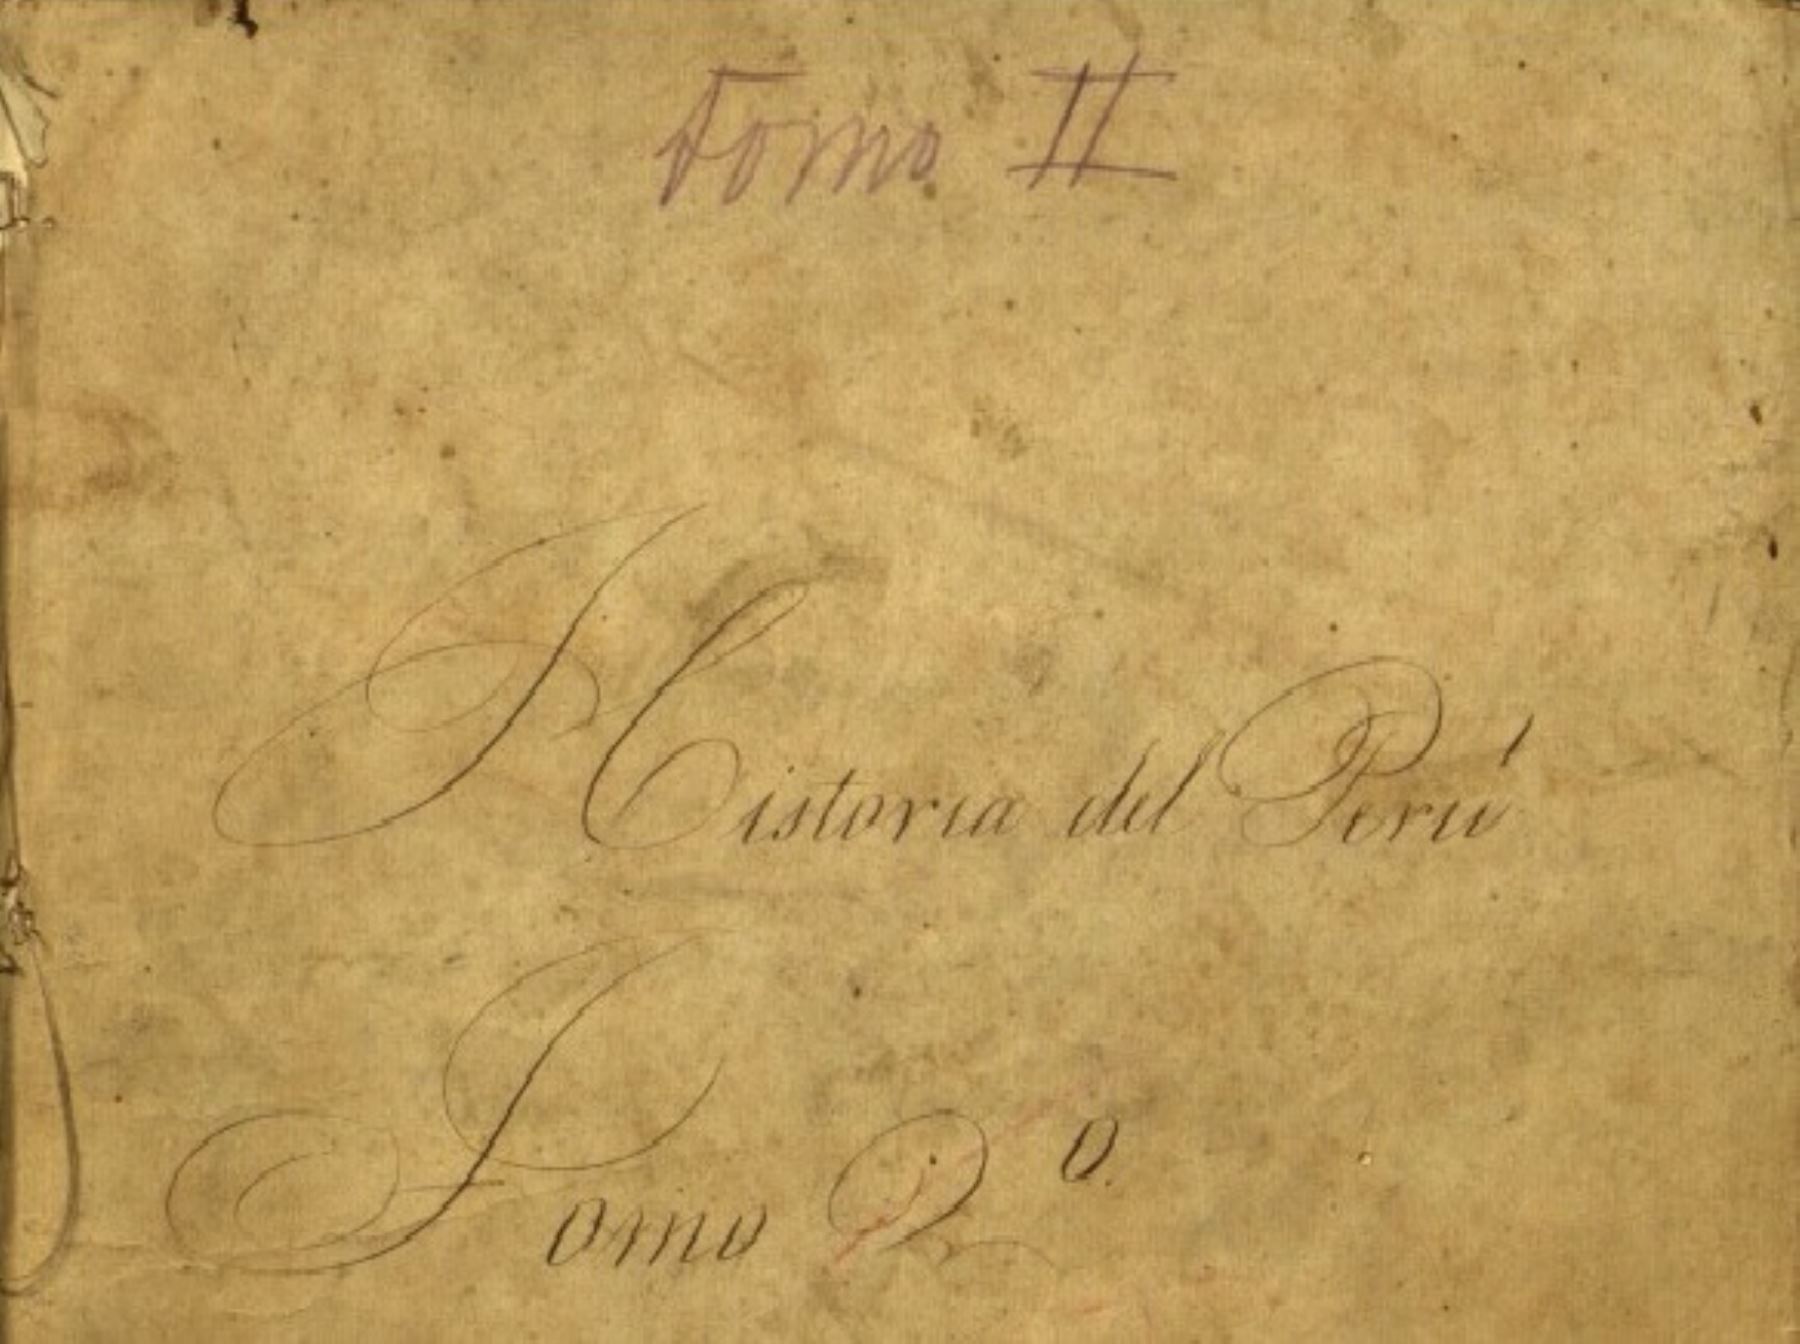 Tomo II
Historia del Perú
Tomo 2º.